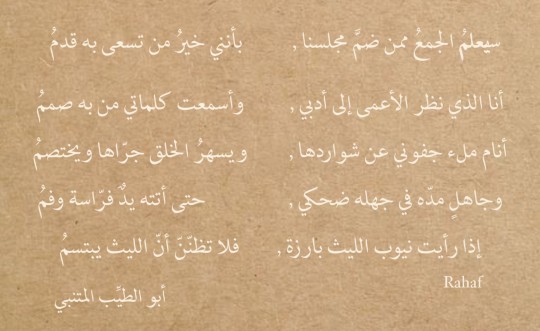 سيعلمُ الجمعُ ممن ضمَّ مجلسنا , بأنني خيرُ من تسعى به قدمُ
أنا الذي نظر الأعمى إلى أدبي , وأسمعت كلماتي من به صممُ
أنام ملء جفوني عن شواردها , ويسهرُ الخلق جرّاها ويختصمُ
وجاهلٍ مدّه في جهله ضحكي , حتى أتته يدٌ فرّاسة وفمُ
إذا رأيت نيوب الليث بارزة , فلا تظننّ أنّ الليث يبتسمُ
Rahaf
أبو الطيِّب المتنبي